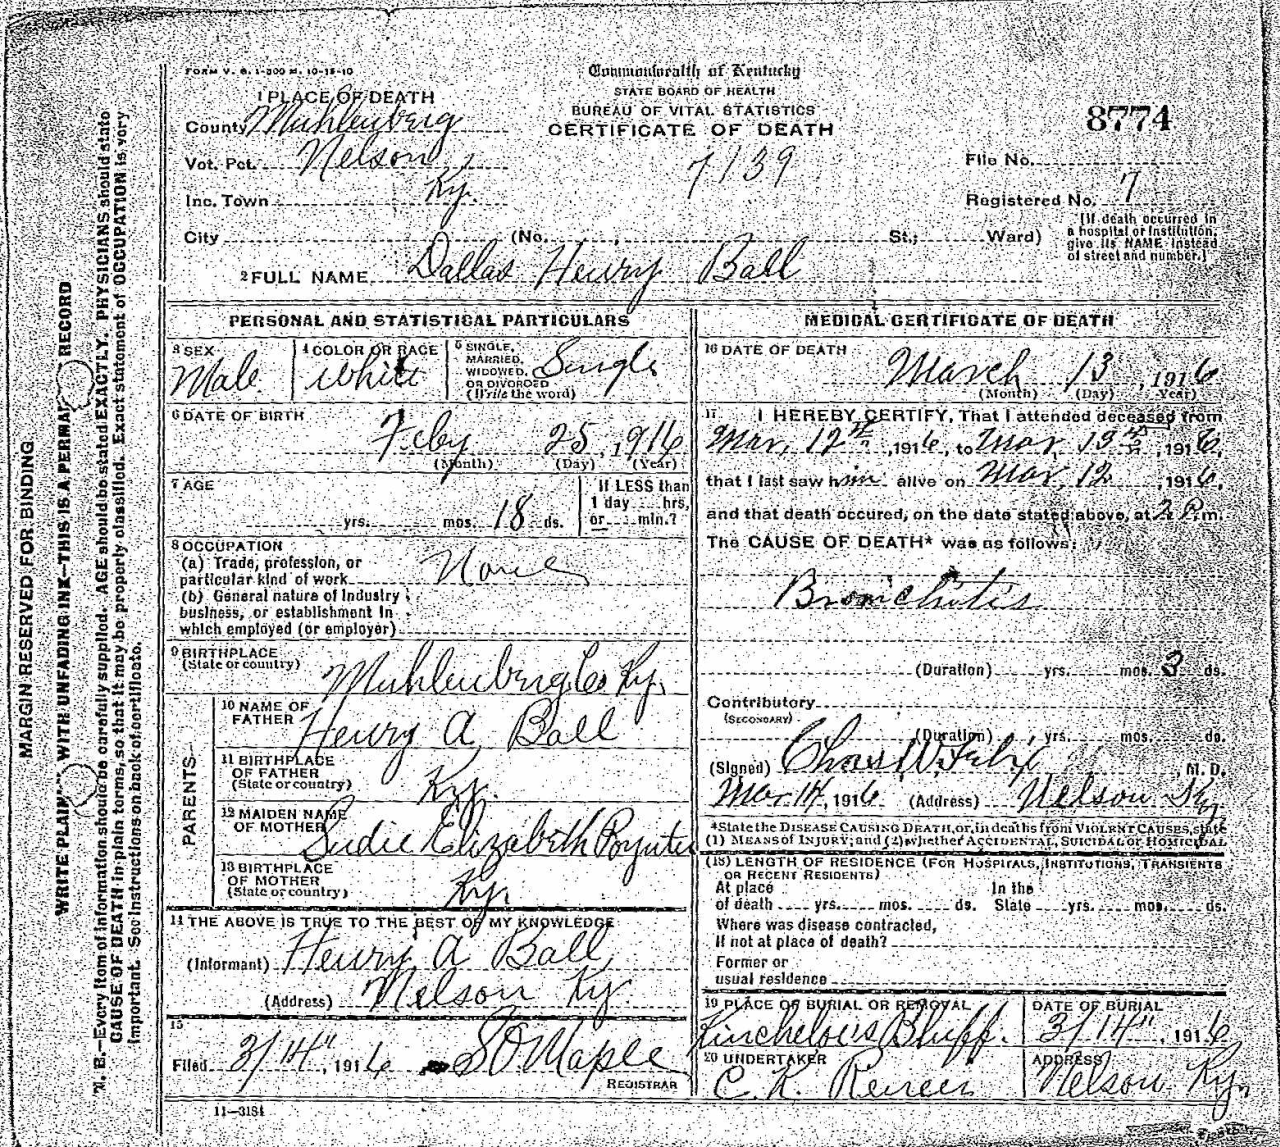 FORM V. S. 1-300 M. 10-15-10
Commonwealth of Kentucky
STATE BOARD OF HEALTH
BUREAU OF VITAL STATISTICS
CERTIFICATE OF DEATH
8774
7139
1 PLACE OF DEATH
County Muhlenberg
Vot. Pct. Nelson
Inc. Town Ky.
City (No. St.; Ward)
File No.
Registered No. 7
[If death occurred in
a hospital or institution,
give its NAME instead
of street and number.]
2 FULL NAME Dallas Henry Ball
PERSONAL AND STATISTICAL PARTICULARS
3 SEX
Male
4 COLOR OR RACE
White
5 SINGLE,
MARRIED,
WIDOWED,
OR DIVORCED
(Write the word)
Single
6 DATE OF BIRTH
Feby 25, 1916
(Month) (Day) (Year)
7 AGE
yrs. mos. 18 ds.
If LESS than
1 day hrs.
or min.?
8 OCCUPATION
(a) Trade, profession, or
particular kind of work None
(b) General nature of Industry
business, or establishment in
which employed (or employer)
9 BIRTHPLACE
(State or country) Muhlenberg Co Ky.
PARENTS
10 NAME OF
FATHER Henry A. Ball
11 BIRTHPLACE
OF FATHER
(State or country) Ky.
12 MAIDEN NAME
OF MOTHER Sudie Elizabeth Poynter
13 BIRTHPLACE
OF MOTHER
(State or country) Ky.
14 THE ABOVE IS TRUE TO THE BEST OF MY KNOWLEDGE
(Informant) Henry A Ball
(Address) Nelson Ky
15
Filed 3/14", 1916 S.O. Maple
REGISTRAR
11-3184
MEDICAL CERTIFICATE OF DEATH
16 DATE OF DEATH
March 13, 1916
(Month) (Day) (Year)
17 I HEREBY CERTIFY, That I attended deceased from
Mar, 12th, 1916, to Mar, 13th, 1916,
that I last saw him alive on Mar, 12, 1916,
and that death occured, on the date stated above, at 2 P.m.
The CAUSE OF DEATH* was as follows:
Bronichitis
(Duration) yrs. mos. 3 ds.
Contributory
(SECONDARY)
(Duration) yrs. mos. ds.
(Signed) Chas W. Felix M. D.
Mar 14, 1916 (Address) Nelson Ky
*State the DISEASE CAUSING DEATH, or, in deaths from VIOLENT CAUSES, state
(1) MEANS OF INJURY; and (2) whether ACCIDENTAL, SUICIDAL or HOMICIDAL
(18) LENGTH OF RESIDENCE (FOR HOSPITALS, INSTITUTIONS, TRANSIENTS
OR RECENT RESIDENTS)
At place In the
of death yrs. mos. ds. State yrs. mos. ds.
Where was disease contracted,
If not at place of death?
Former or
usual residence
19 PLACE OF BURIAL OR REMOVAL
Kincheloes Bluff.
DATE OF BURIAL
3/14", 1916
20 UNDERTAKER
C. K.
ADDRESS
Nelson Ky,
MARGIN RESERVED FOR BINDING
WRITE PLAIN WITH UNFADING INK—THIS IS A PERMA RECORD
N. B.—Every item of information should be carefully supplied. AGE should be stated EXACTLY. PHYSICIANS should state
CAUSE OF DEATH in plain terms, so that it may be properly classified. Exact statement of OCCUPATION is very
important. See instructions on back of certificate.